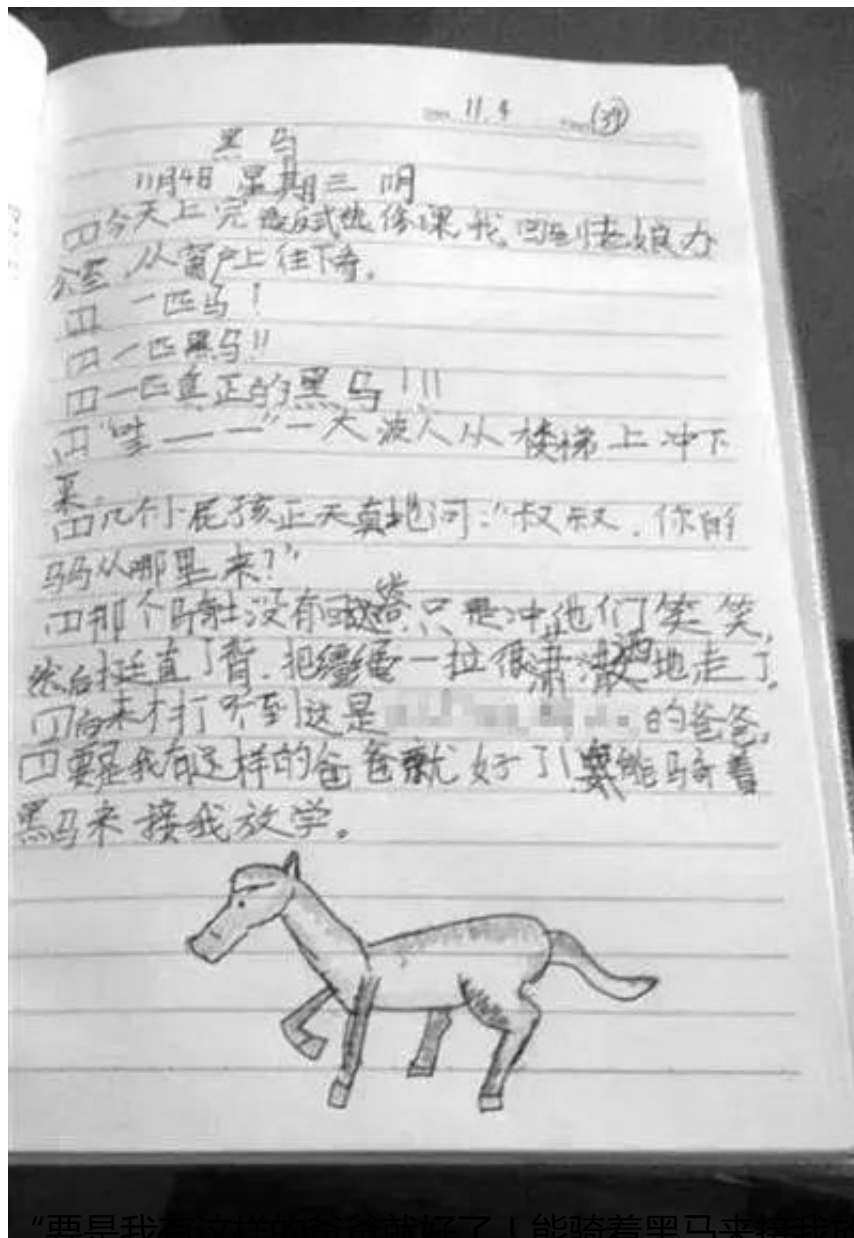 11.4 39
黑马
11月4日 星期三 阴
今天上完 选修课我 老娘办
公室,从窗户上往下看。
一匹马!
一匹黑马!!
一匹真正的黑马!!!
“哇———”一大波人从楼梯上冲下
来
几个小屁孩正天真地问:“叔叔,你的
马从哪里来?”
那个骑士没有回答,只是冲他们笑笑,
然后挺直了背,把缰绳一拉很潇洒地走了。
后来才打听到这是 的爸爸,
要是我有这样的爸爸就好了!能骑着
黑马来接我放学。
“要是我有这样的爸爸就好了!能骑着黑马来接我放